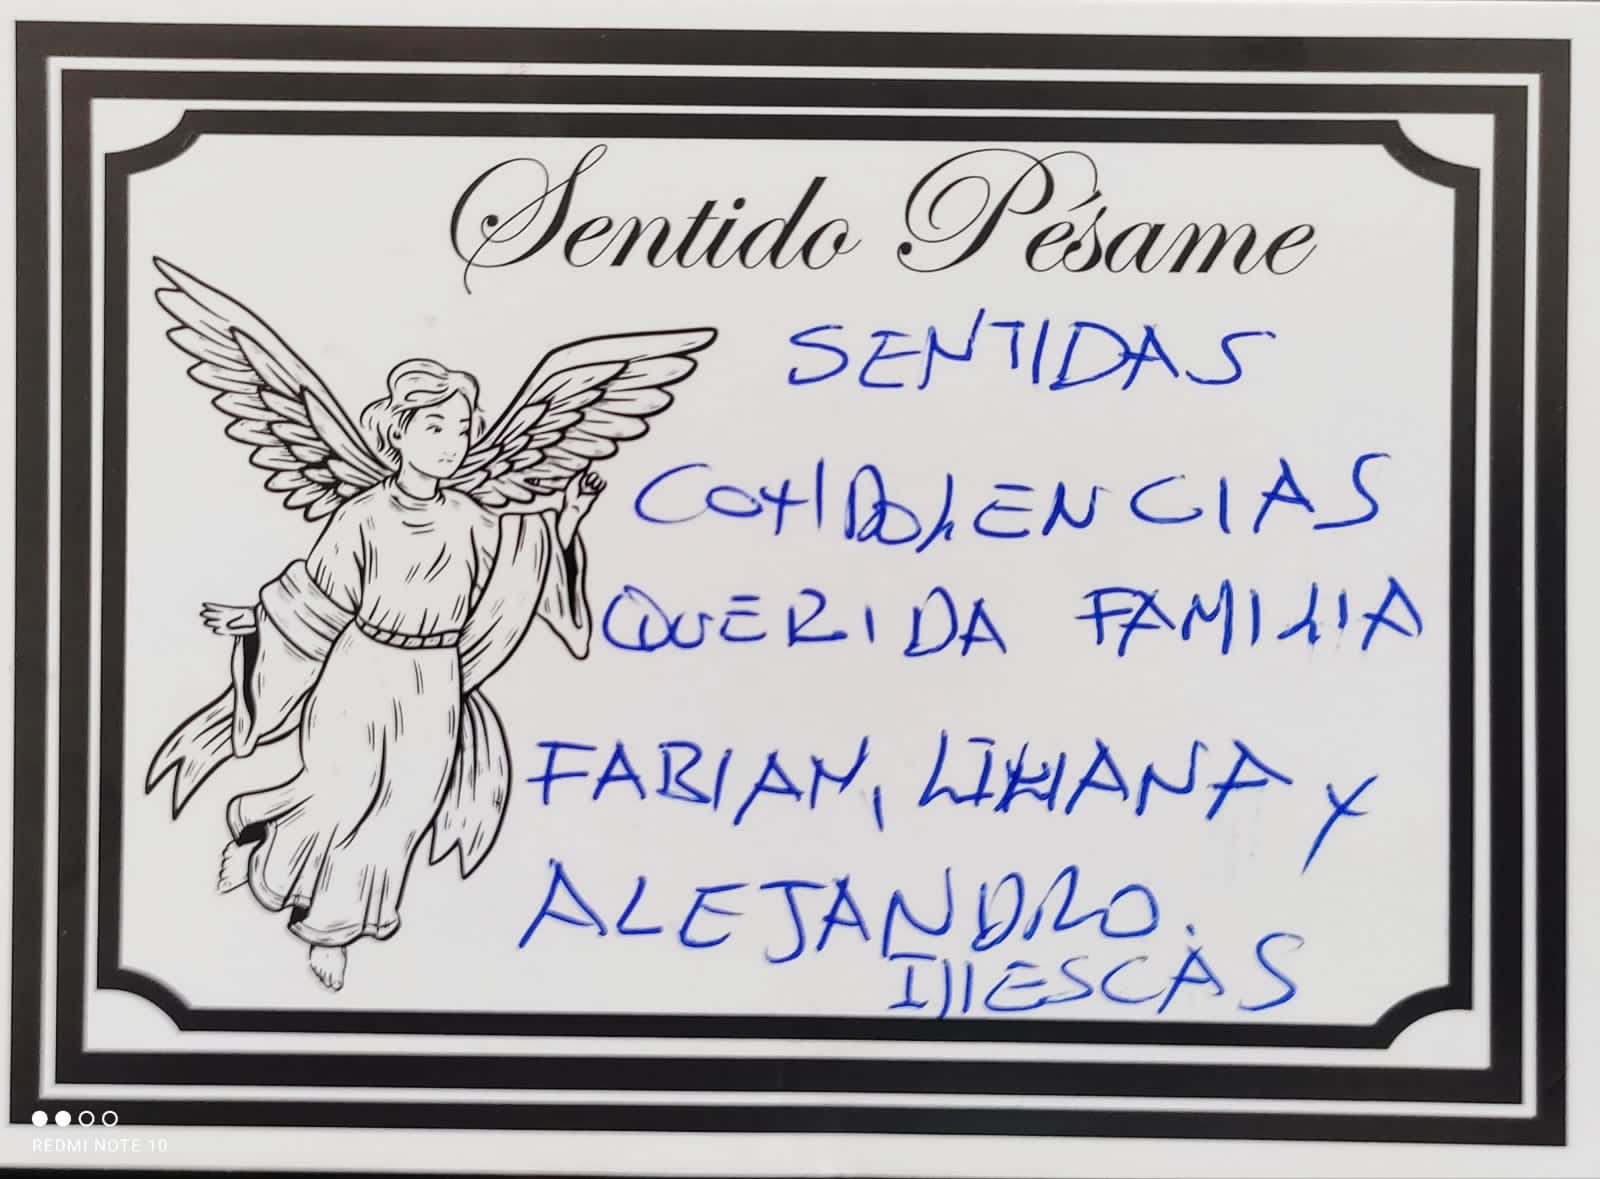 Sentido Pésame
SENTIDAS
CONDOLENCIAS
QUERIDA FAMILIA
FABIAN, LILIANA Y
ALEJANDRO.
ILLESCAS
REDMI NOTE 10